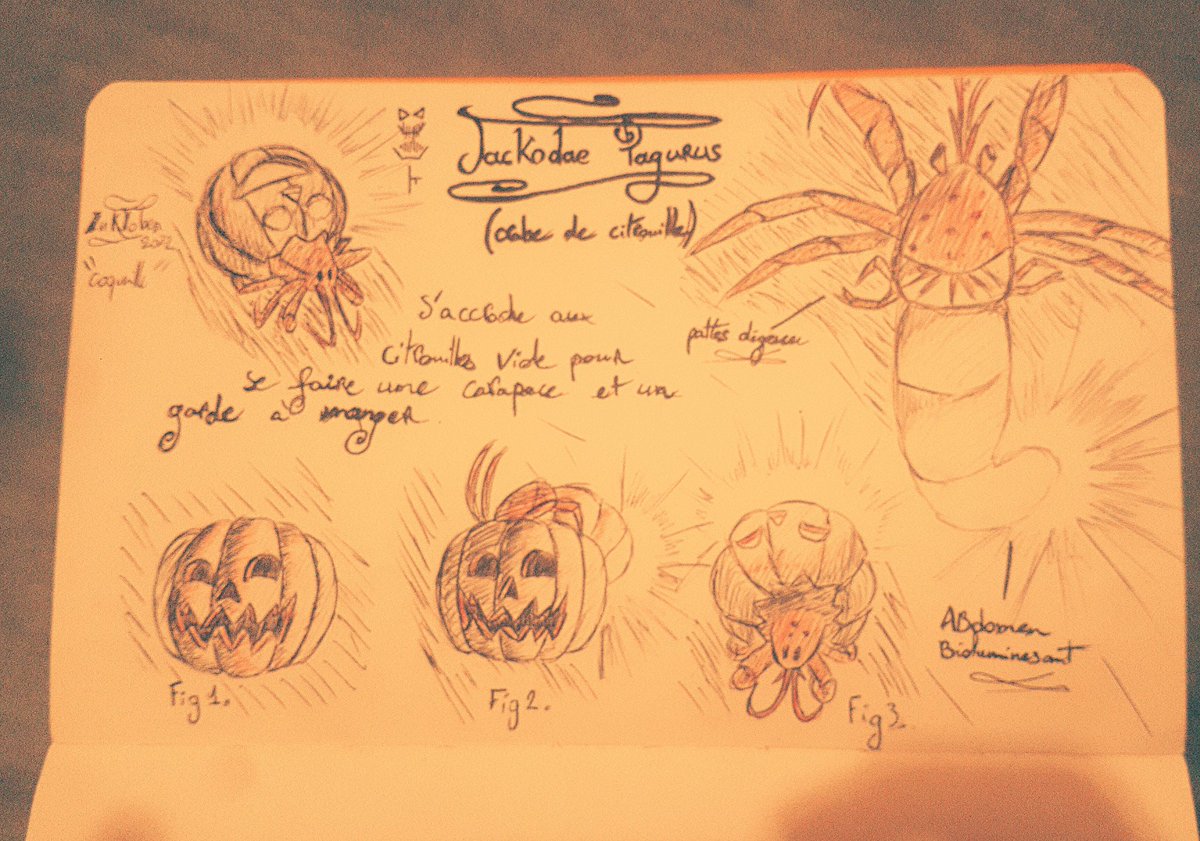 JacKodae Pagurus
(crabe de citrouille)
InKTober
"Coquille"
S'accroche aux
citrouilles vide pour
se faire une carapace et un
garde à manger.
pattes
Fig 1.
Fig 2.
Fig 3.
ABdomen
Bioluminesant